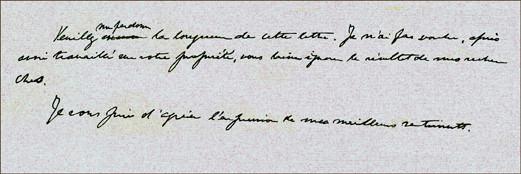 me pardonner
Veuillez la longueur de cette lettre. Je n'ai pas voulu, après
avoir travaillé sur votre propriété, vous laisser ignorer le résultat de mes recher
ches.
Je vous prie d'agréer l'expression de mes meilleurs sentiments.